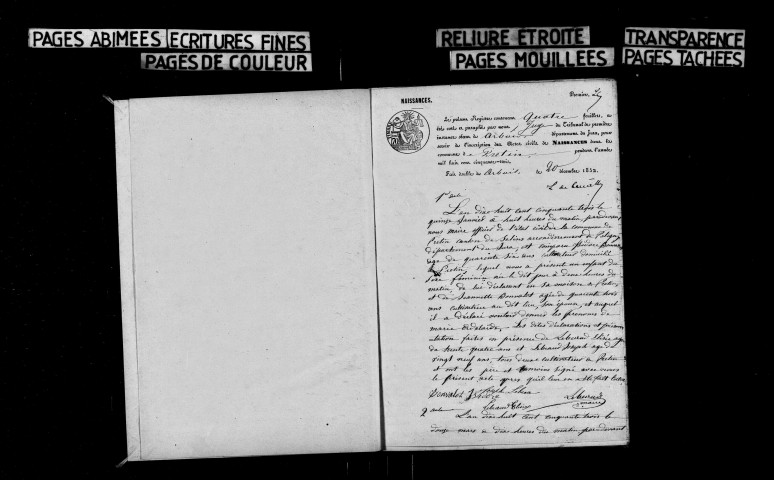 PAGES ABIMEES ECRITURES FINES
PAGES DE COULEUR
RELIURE ETROITE
PAGES MOUILLEES
TRANSPARENCE
PAGES TACHEES
NAISSANCES.
Premier,
Le présent Registre contenant Quatre feuillets, a
été coté et paraphé par nous, Juge du Tribunal de première
instance séant à Arbois, département du Jura, pour
servir à l'inscription des Actes civils de NAISSANCES dans la
commune de Pretin pendant l'année
mil huit cent cinquante-trois.
Fait double à Arbois, le 20 décembre 1852.
1er acte
L'an dix huit cent cinquante trois le
quinze Janvier à huit heures du matin, pardevant
nous maire officier de l'état civil de la commune de
Pretin canton de Salins arrondissement de Poligny
département du Jura, est comparu
âgé de quarante six ans cultivateur domicilié
à Pretin, lequel nous a présenté un enfant du
sexe féminin né le dit jour à deux heures du
matin, de lui déclarant en sa maison à Pretin,
et de Jeannette Bonvalot agée de quarante trois
ans cultivatrice au dit lieu, son épouse, et auquel
il a déclaré vouloir donner les prénoms de
marie Adelaïde, Les dites déclarations et présen
tation faites en présence de agé
de trente quatre ans et Joseph agé de
vingt neuf ans, tous deux cultivateurs à Pretin
et ont les père et témoins signé avec nous
le présent acte après qu'il leur en a été fait lecture
maire
2 acte
L'an dix huit cent cinquante trois le
douze mars à dix heures du matin pardevant